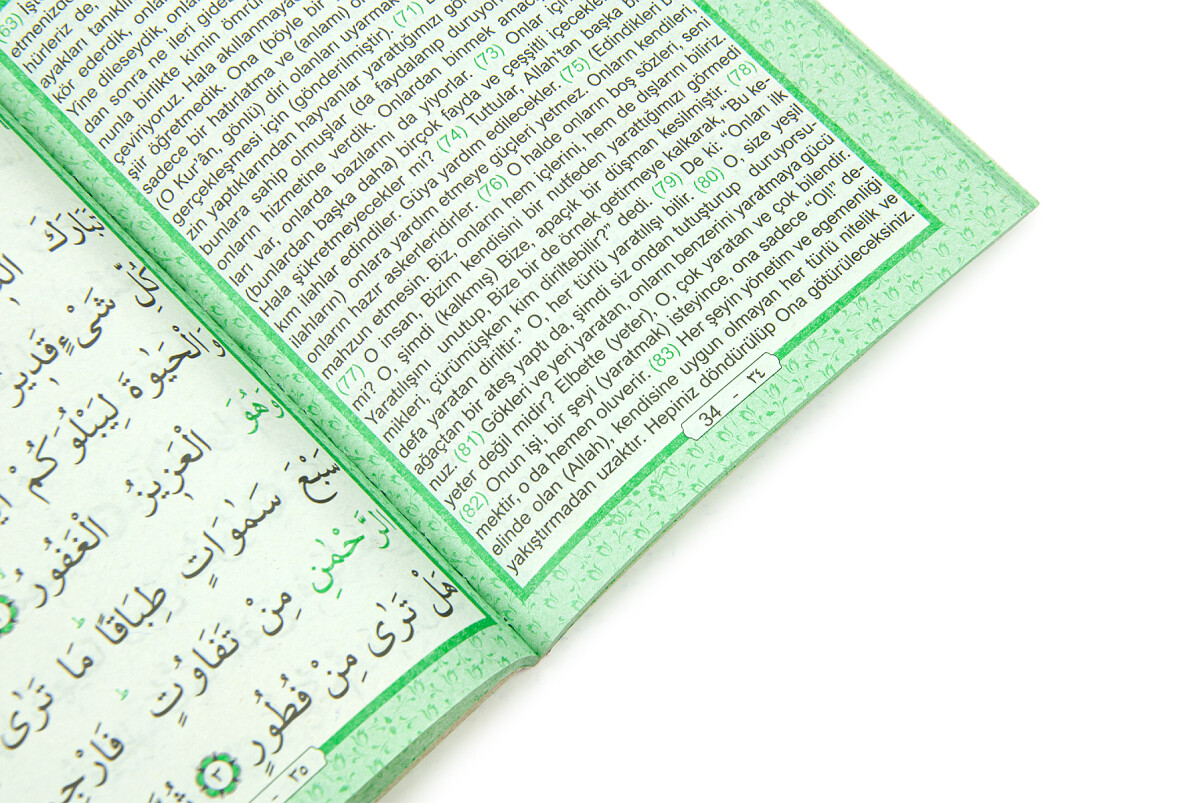 etmenizde
nürleriz de,
kör ederdik,
Yine dileseydik,
dan sonra ne ileri
nunla birlikte kimin
çeviriyoruz. Hala
şiir öğretmedik. Ona (böyle bir
sadece bir hatırlatma ve (anlamı)
(O Kur'ân, gönlü) diri olanları
gerçekleşmesi için (gönderilmiştir). (71)
zin yaptıklarından hayvanlar yarattığımızı
bunlara sahip olmuşlar (da faydalanıp
onların hizmetine verdik. Onlardan binmek
ları var, onlardan bazılarını da yiyorlar. (73) Onlar
(bunlardan başka daha) birçok fayda ve çeşşitli içecekler
Hala şükretmeyecekler mi? (74) Tuttular, Allah'tan başka
kım ilahlar edindiler. Güya yardım edilecekler. (75) (Edindikleri
ilahların) onlara yardım etmeye güçleri yetmez. Onların kendileri
onların hazır askerleridirler. (76) O halde onların boş sözleri, seni
mahzun etmesin. Biz, onların hem içlerini, hem de dışlarını biliriz.
(77) O insan, Bizim kendisini bir nutfeden yarattığımızı görmedi
mi? O, şimdi (kalkmış) Bize, apaçık bir düşman kesilmiştir. (78)
Yaratılışını unutup, Bize bir de örnek getirmeye kalkarak, "Bu ke-
mikleri, çürümüşken kim diriltebilir?" dedi. (79) De ki: "Onları ilk
defa yaratan diriltir." O, her türlü yaratılışı bilir. (80) O, size yeşil
ağaçtan bir ateş yaptı da, şimdi siz ondan tutuşturup duruyorsu-
nuz. (81) Gökleri ve yeri yaratan, onların benzerini yaratmaya gücü
yeter değil midir? Elbette (yeter), O, çok yaratan ve çok bilendir.
(82) Onun işi, bir şeyi (yaratmak) isteyince, ona sadece "Ol!" de-
mektir, o da hemen oluverir. (83) Her şeyin yönetim ve egemenliği
elinde olan (Allah), kendisine uygun olmayan her türlü nitelik ve
yakıştırmadan uzaktır. Hepiniz döndürülüp Ona götürüleceksiniz.
34 - ٣٤
تَبَارَكَ
شَىْءٍ قَدِيرٌ
وَالْحَيٰوةَ لِيَبْلُوَكُمْ
وَهُوَ الْعَزِيزُ الْغَفُورُ
سَبْعَ سَمٰوَاتٍ طِبَاقًا مَا تَرٰى
الرَّحْمٰنِ مِنْ تَفَاوُتٍ
هَلْ تَرٰى مِنْ فُطُورٍ ٣
- ٣٥